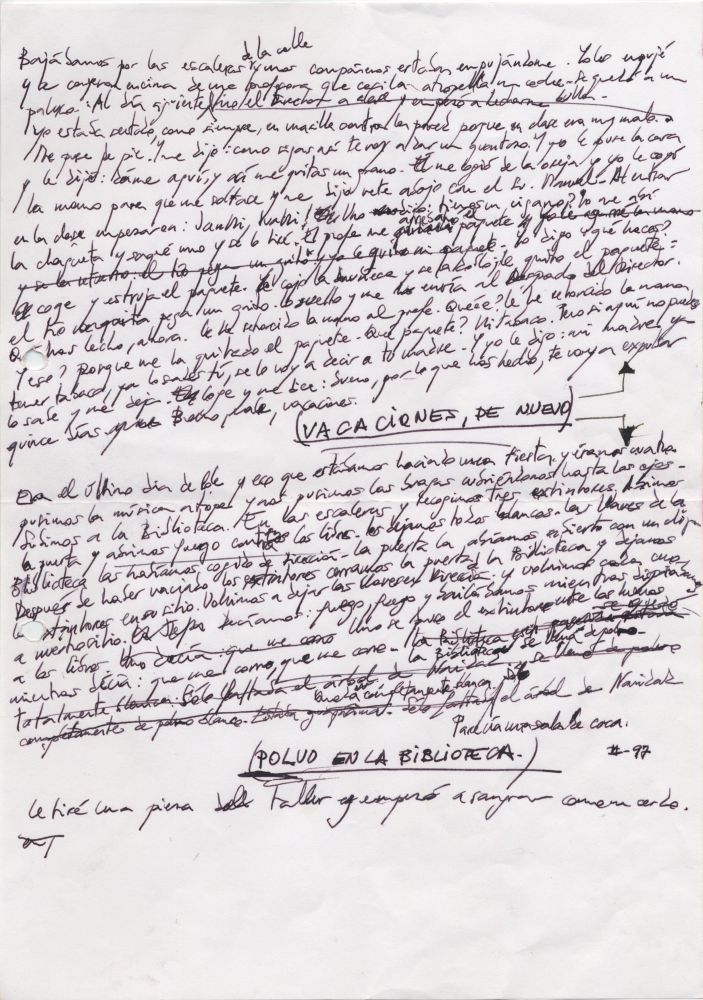 de la calle
Bajábamos por las escaleras y unos compañeros estaban empujándome. Yo lo empujé
y le cayeron encima de una profesora que casi la atropella un coche. Se quedó a un
palmo. Al día siguiente vino el Director a clase y empezó a echarme bulla.
Yo estaba sentado, como siempre, en una silla contra la pared porque en clase era muy malo.
Me puse de pie. Y me dijo: como sigas así te voy a dar un guantazo. Y yo le puse la cara
y le dije: dame aquí, y así me quitas un grano. Él me cogió de la oreja y yo le cogí
la mano para que me soltase y me dijo vete abajo con el Sr. Manuel. Al entrar
en la clase empezaron: Uno dijo: tienes un cigarro? Yo me abrí
la chaqueta y saqué uno y se lo tiré. El profe me paquete y yo le agarré la mano
y se la retuerzo: el tío pega un grito y yo le quito mi paquete. Yo digo y qué haces?
coge y estruja el paquete. Le cojo la muñeca y se la le quito el paquete:
el tío pega un grito. Lo suelto y me envía al despacho del Director.
Qué has hecho, ahora. Le he retorcido la mano al profe. Queee? le he retorcido la mano.
Y eso? porque me ha quitado el paquete. Qué paquete? Mi tabaco. Pero si aquí no puedes
tener tabaco, ya lo sabes tú, se lo voy a decir a tu madre. Y yo le dijo: mi madre ya
lo sabe y me deja. Coge y me dice: bueno, por lo que has hecho, te voy a expulsar
quince días. Bueno, vale, vacaciones.
(VACACIONES, DE NUEVO)
Era el último día de y eso que estábamos haciendo una fiesta, y éramos
pusimos la música a tope y nos pusimos las hasta los ojos.
Subimos a la Biblioteca. En las escaleras y recogimos tres extintores. Abrimos
la puerta y abrimos fuego contra los libros. los dejamos todos blancos. las llaves de la
Biblioteca las habíamos cogido de Dirección. la puerta la abrimos, y
Después de haber vaciado los extintores cerramos la puerta de la Biblioteca y dejamos
los extintores en su sitio. Volvimos a dejar las llaves en Dirección. y volvimos cada uno
a nuestro sitio. decíamos: fuego, fuego y bailábamos mientras disparábamos
a los libros. Uno decía: que me corro Uno se puso el extintor entre las
mientras decía: que me corro, que me corro. la Biblioteca
la Biblioteca se llenó de polvo
totalmente blanca. Sólo faltaba el árbol de Navidad se llenó de polvo
completamente de polvo blanco. Estaba Sólo faltaba el árbol de Navidad
Parecía una sala de coca.
(POLVO EN LA BIBLIOTECA.) #-97
le tiré una pieza del Taller y empezó a sangrar como un cerdo.